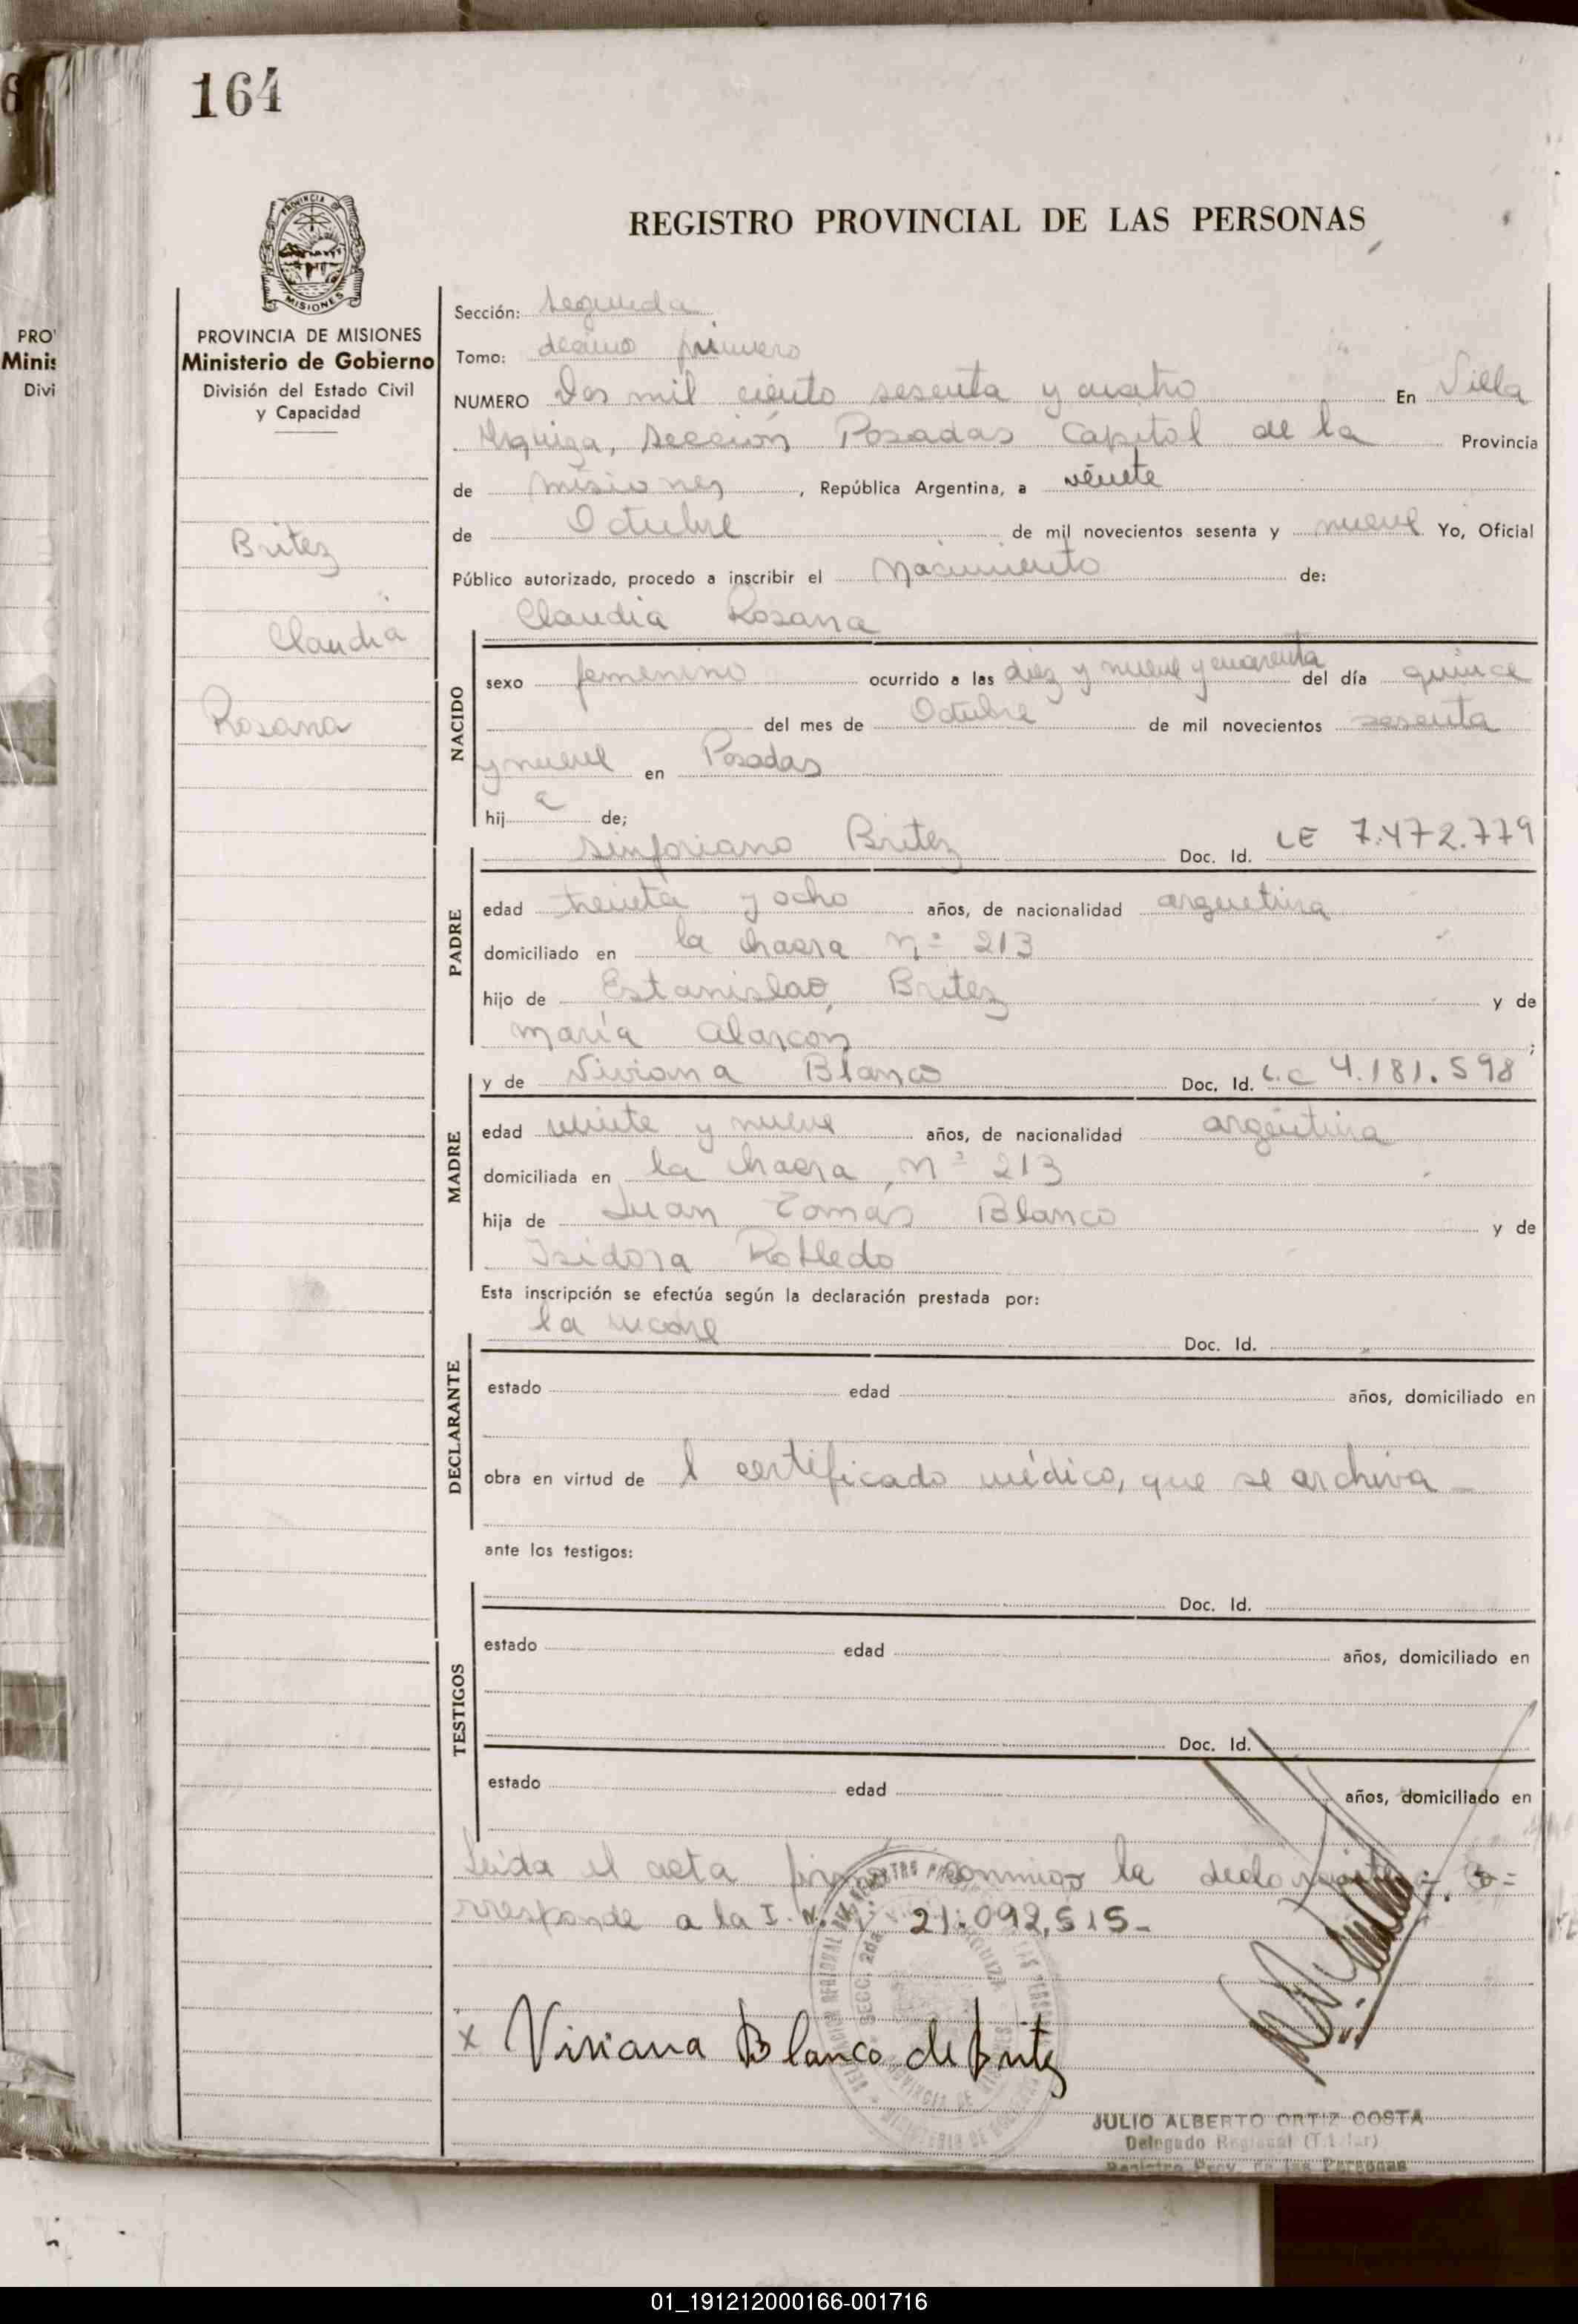 164
PROVINCIA
MISIONES
PROVINCIA DE MISIONES
Ministerio de Gobierno
División del Estado Civil
y Capacidad
Britez
Claudia
Rosana
REGISTRO PROVINCIAL DE LAS PERSONAS
Sección: segunda
Tomo: décimo primero
NUMERO Dos mil ciento sesenta y cuatro En Villa
Urquiza, Sección Posadas Capital de la Provincia
de misiones, República Argentina, a véinte
de Octubre de mil novecientos sesenta y nueve Yo, Oficial
Público autorizado, procedo a inscribir el Nacimiento de:
Claudia Rosana
NACIDO
sexo femenino ocurrido a las diez y nueve y cuarenta del día quince
del mes de Octubre de mil novecientos sesenta
y nueve en Posadas
hij a de;
PADRE
Sinforiano Britez Doc. Id. LE 7.472.779
edad treinta y ocho años, de nacionalidad argentina
domiciliado en la chacra nº 213
hijo de Estanislao Britez y de
María Alarcón;
MADRE
y de Viviana Blanco Doc. Id. L.C 4.181.598
edad veinte y nueve años, de nacionalidad argentina
domiciliada en la chacra nº 213
hija de Juan Tomás Blanco y de
Isidora Robledo
Esta inscripción se efectúa según la declaración prestada por:
DECLARANTE
la madre Doc. Id.
estado edad años, domiciliado en
obra en virtud de l certificado médico, que se archiva
ante los testigos:
TESTIGOS
Doc. Id.
estado edad años, domiciliado en
Doc. Id.
estado edad años, domiciliado en
Leída el acta firma conmigo la declarante.- Co=
rresponde a la I. N. 21.092.515-
x Viviana Blanco de Britez
JULIO ALBERTO ORTIZ COSTA
Delegado Regional (Titular)
Registro Prov. de las Personas
01_191212000166-001716